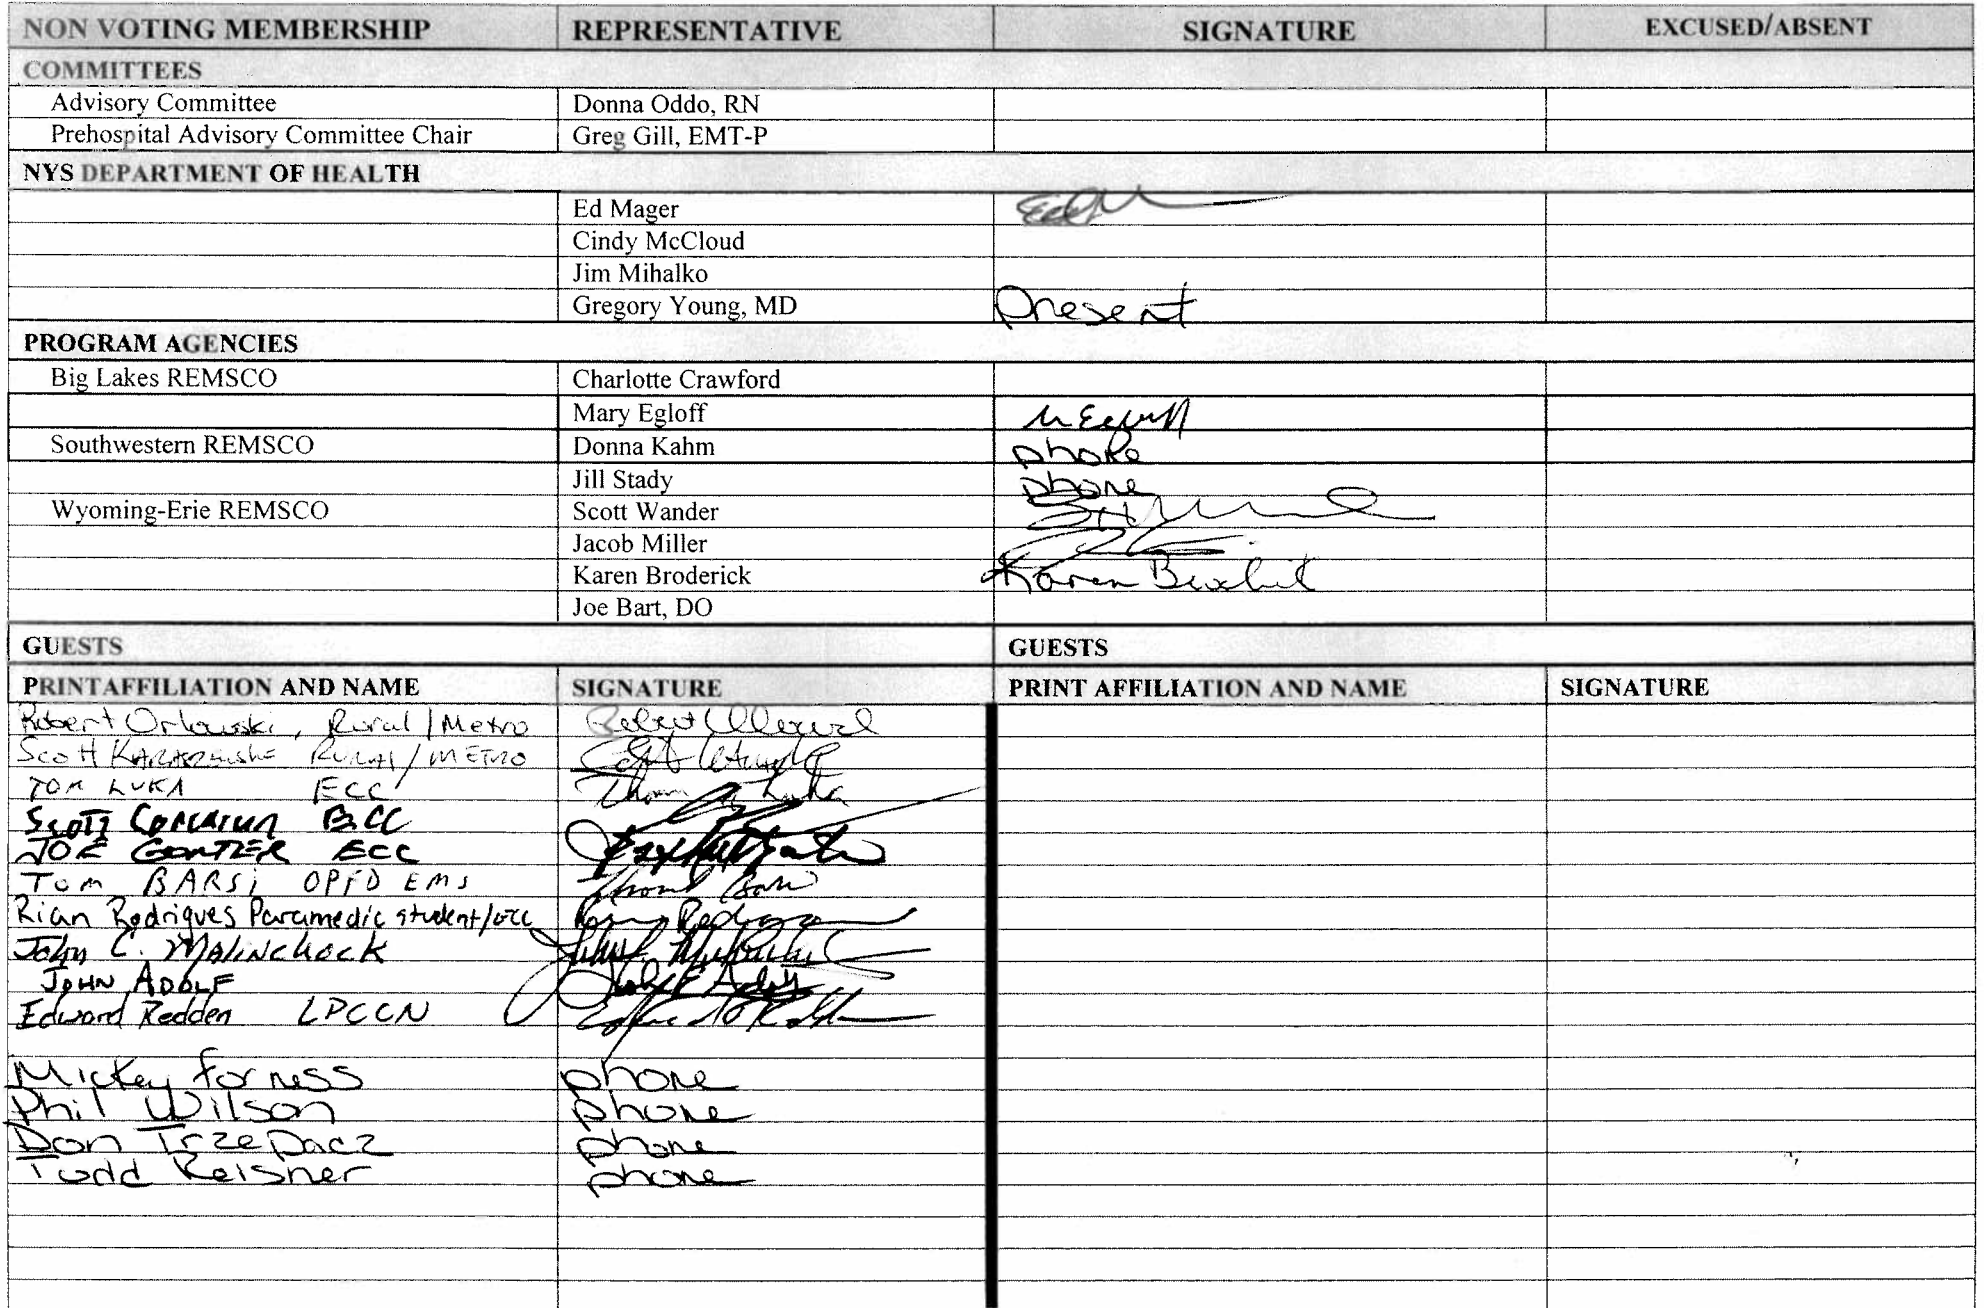 NON VOTING MEMBERSHIP REPRESENTATIVE SIGNATURE EXCUSED/ABSENT
COMMITTEES
Advisory Committee Donna Oddo, RN
Prehospital Advisory Committee Chair Greg Gill, EMT-P
NYS DEPARTMENT OF HEALTH
Ed Mager
Cindy McCloud
Jim Mihalko
Gregory Young, MD Present
PROGRAM AGENCIES
Big Lakes REMSCO Charlotte Crawford
Mary Egloff
Southwestern REMSCO Donna Kahm phone
Jill Stady phone
Wyoming-Erie REMSCO Scott Wander
Jacob Miller
Karen Broderick Karen
Joe Bart, DO
GUESTS GUESTS
PRINT AFFILIATION AND NAME SIGNATURE PRINT AFFILIATION AND NAME SIGNATURE
Robert Orlowski, Rural/Metro
Scott Rural/METRO
TOM LUKA ECC
Scott
JOE ECC
Tom BARSi OPFD EMS
Rian Rodrigues Paramedic student/ECC
John C. MALINCHOCK
JOHN ADOLF
Edward Redden LPCCN
Mickey forness phone
Phil Wilson phone
Don Trzepacz phone
Todd Reisner phone